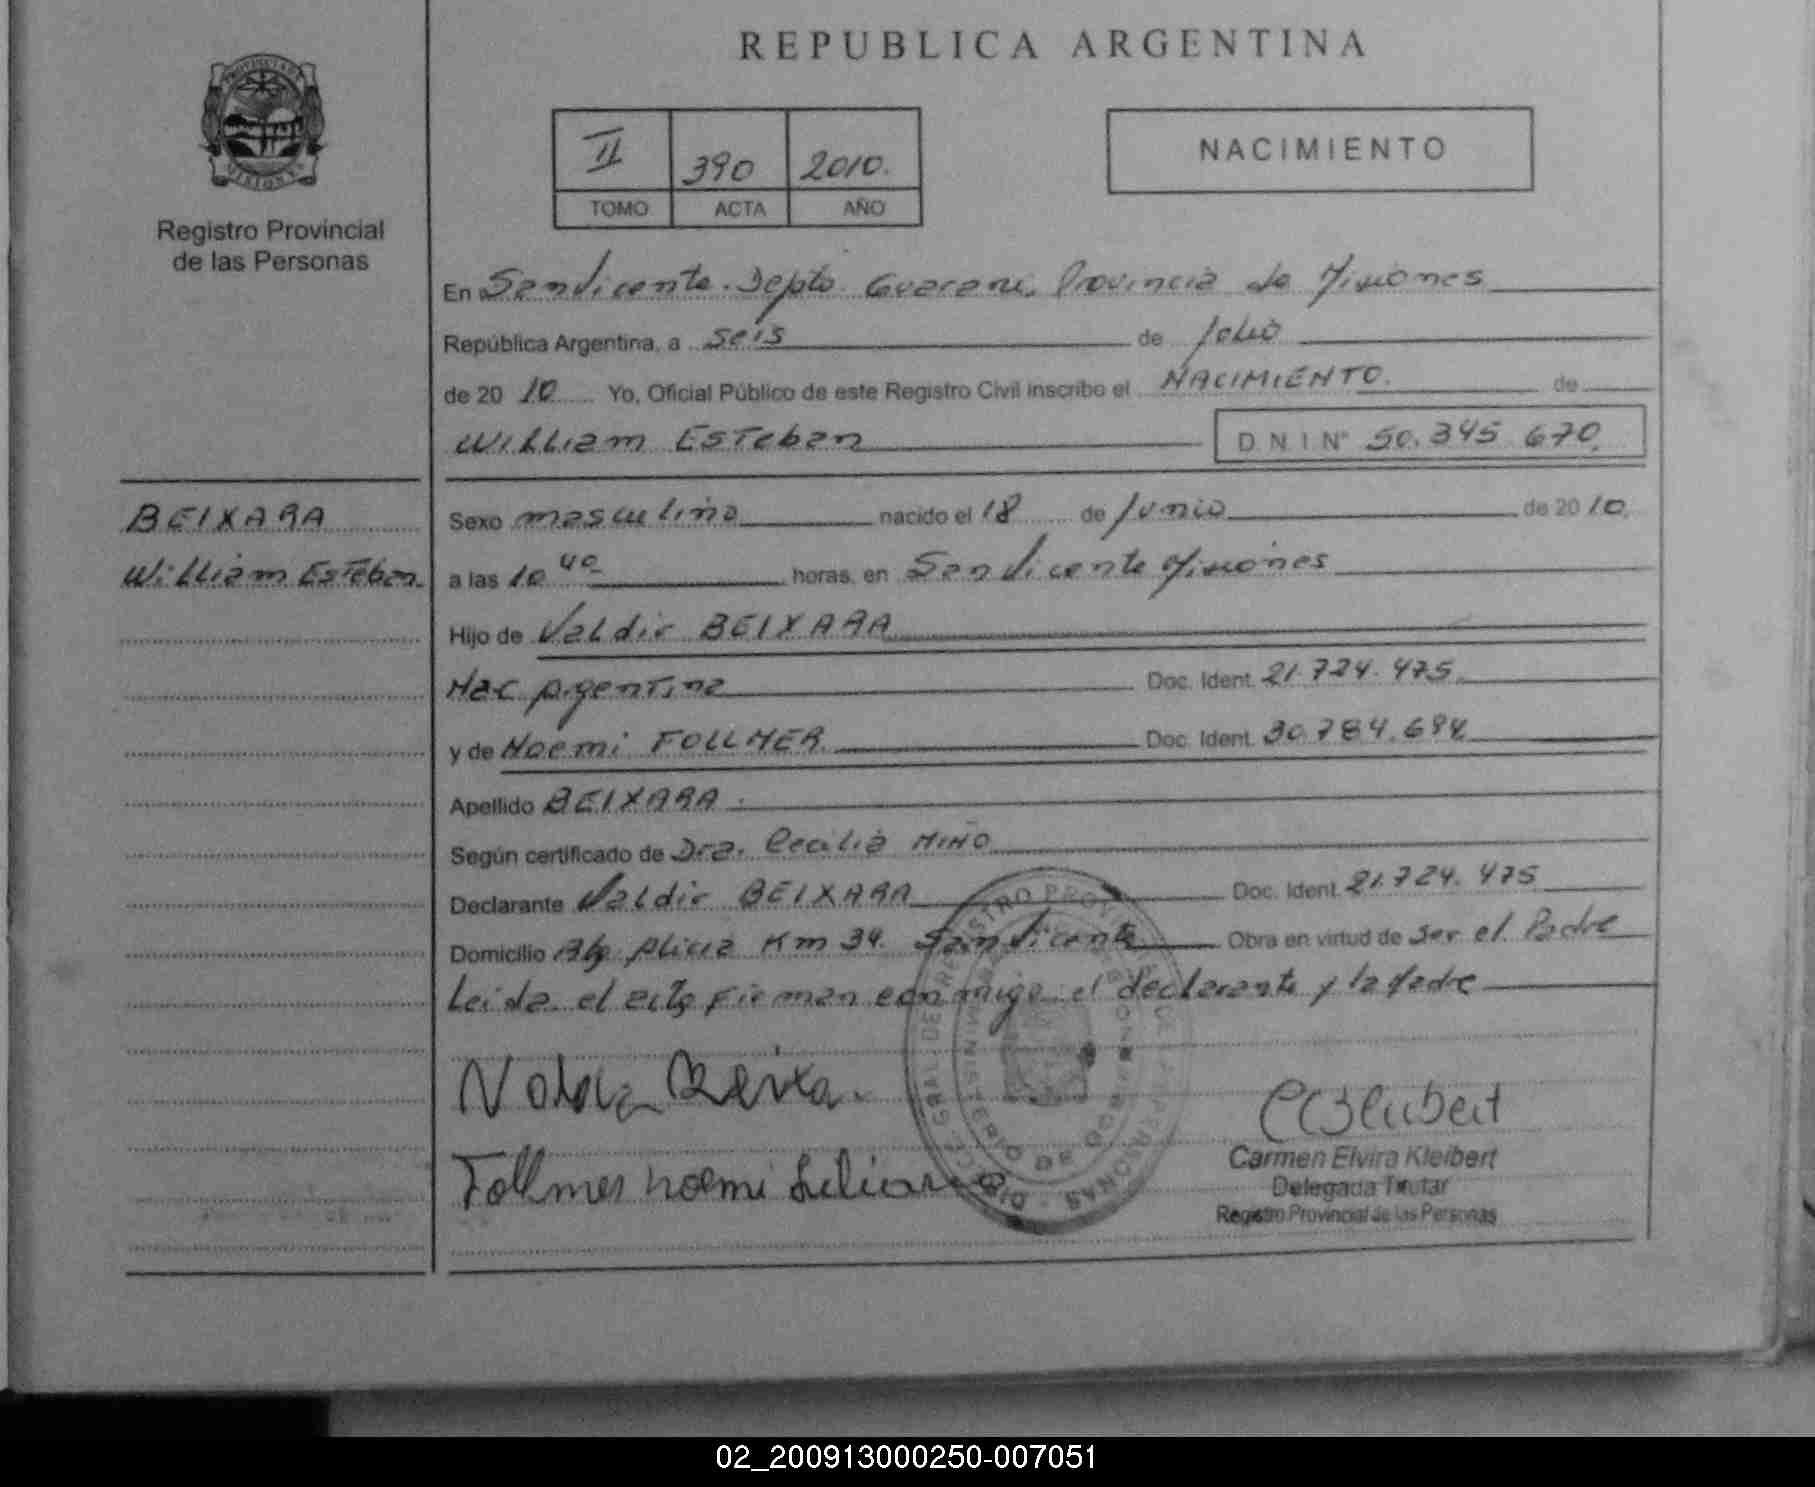 REPUBLICA ARGENTINA
PROVINCIA DE MISIONES
Registro Provincial
de las Personas
II 390 2010.
TOMO ACTA AÑO
NACIMIENTO
En San Vicente. Depto. Guarani, Provincia de Misiones
República Argentina, a seis de Julio
de 2010 Yo, Oficial Público de este Registro Civil inscribo el NACIMIENTO. de
William Esteban D.N.I Nº 50.345.670.
BEIXARA
William Esteban.
Sexo masculino nacido el 18 de Junio de 2010.
a las 10 40 horas, en San Vicente Misiones
Hijo de Valdir BEIXARA
Nac Argentina Doc. Ident. 21.724.475.
y de Noemi FOLLMER. Doc. Ident. 30.784.694
Apellido BEIXARA.
Según certificado de Dra. Cecilia MIÑO
Declarante Valdir BEIXARA Doc. Ident. 21.724.475
Domicilio Alicia Km 34. San Vicente Obra en virtud de ser el Padre
Leida el acta firman conmigo el declarante y la Madre
Follmer noemi
Carmen Elvira Kleibert
Delegada Titular
Registro Provincial de las Personas
02_200913000250-007051